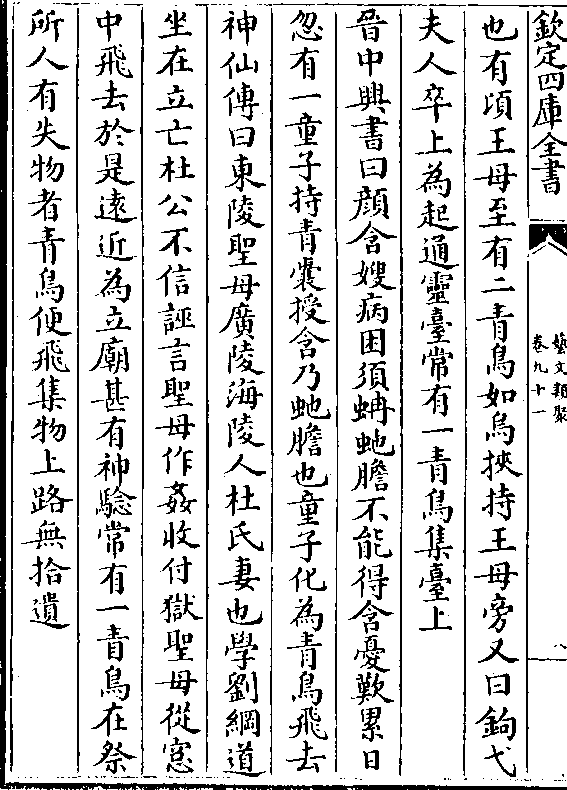 欽定四庫全書
藝文類聚
卷九十一
八
也有頃王母至有二青鳥如烏挾持王母旁又曰鉤弋
夫人卒上為起通靈臺常有一青鳥集臺上
晉中興書曰顔含嫂病困須蚺虵膽不能得含憂歎累日
忽有一童子持青囊授含乃虵膽也童子化為青鳥飛去
神仙傳曰東陵聖母廣陵海陵人杜氏妻也學劉綱道
坐在立亡杜公不信誣言聖母作姦收付獄聖母從窓
中飛去於是遠近為立廟甚有神驗常有一青鳥在祭
所人有失物者青鳥便飛集物上路無拾遺